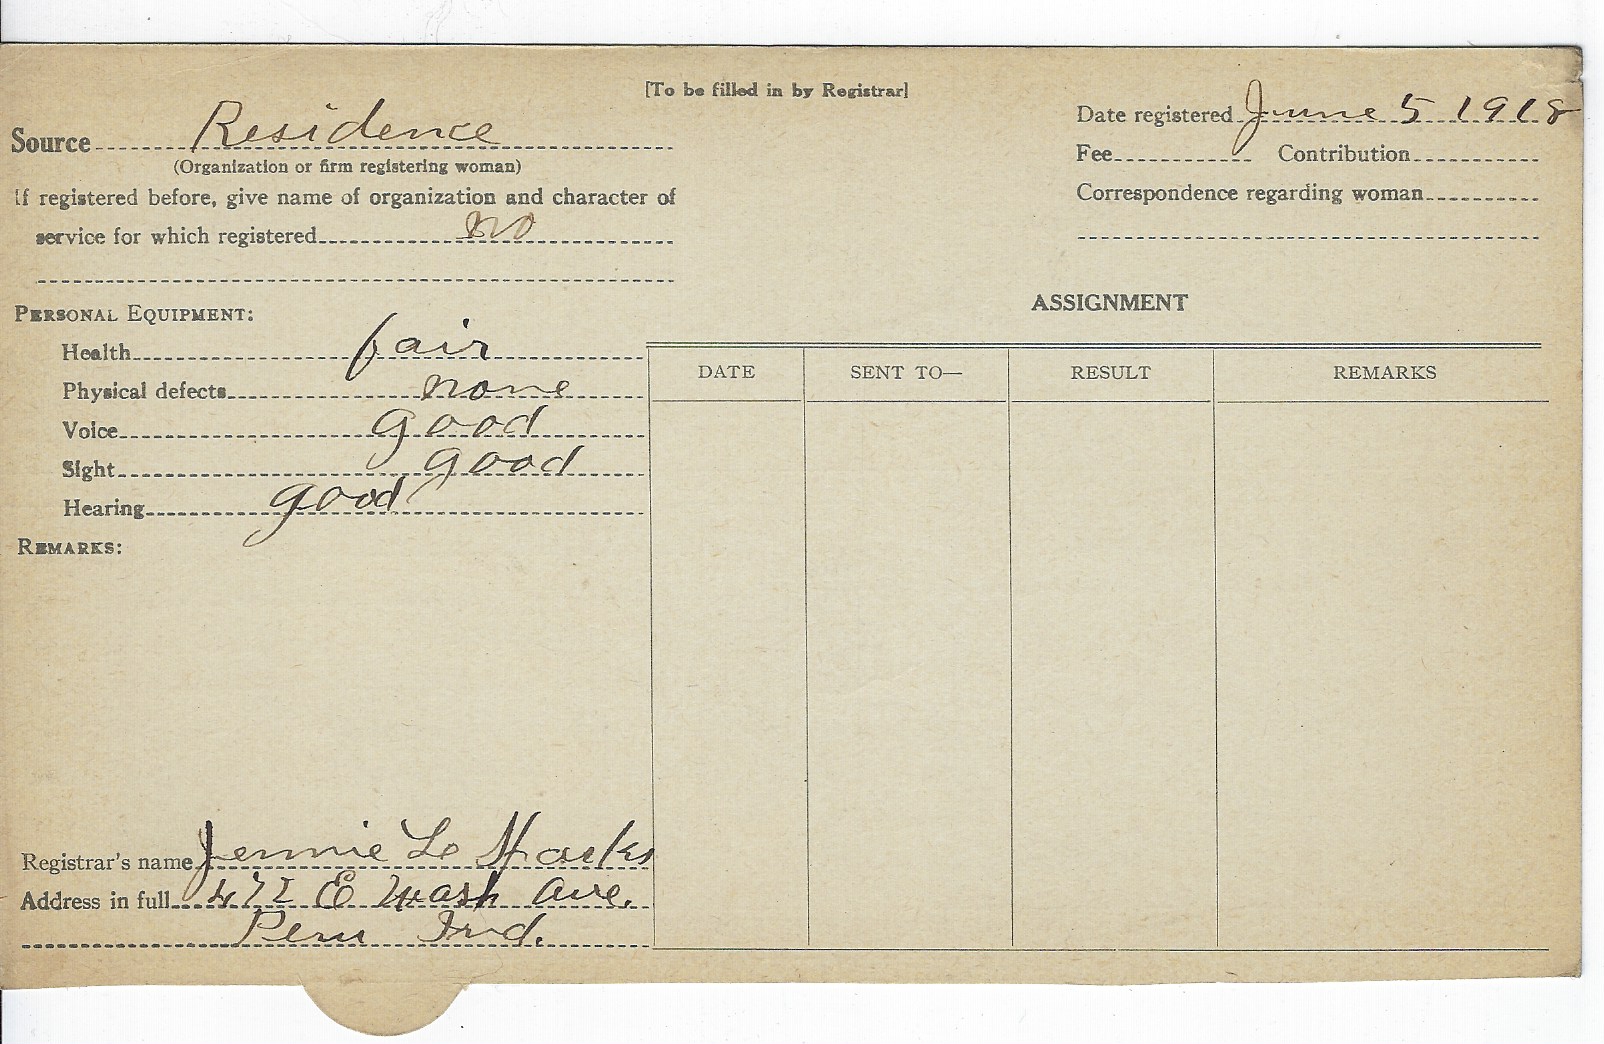 [To be filled in by Registrar]
Source Residence
(Organization or firm registering woman)
If registered before, give name of organization and character of
service for which registered no
Date registered June 5 1918
Fee Contribution
Correspondence regarding woman
PERSONAL EQUIPMENT:
Health fair
Physical defects none
Voice good
Sight good
Hearing good
REMARKS:
ASSIGNMENT
DATE SENT TO— RESULT REMARKS
Registrar's name Jennie Lo
Address in full E Wash Ave.
Peru Ind.